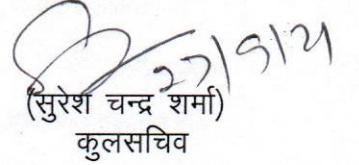 27/9/21
(सुरेश चन्द्र शर्मा)
कुलसचिव